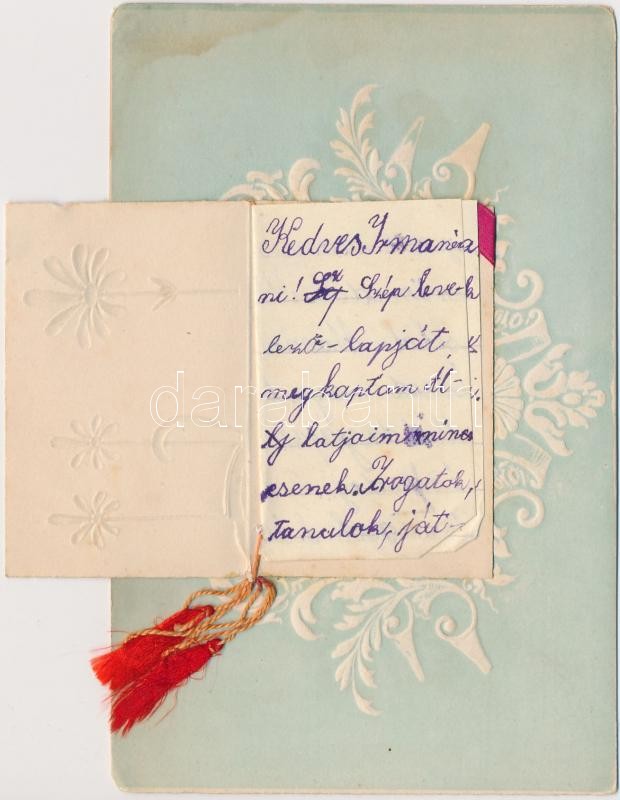 Kedves Irmanéni
ni! Szép levele
lező-lapját,
megkaptam Itt
látjaim nincs
csenek. Irogatok,
tanulok, ját-
darabanth